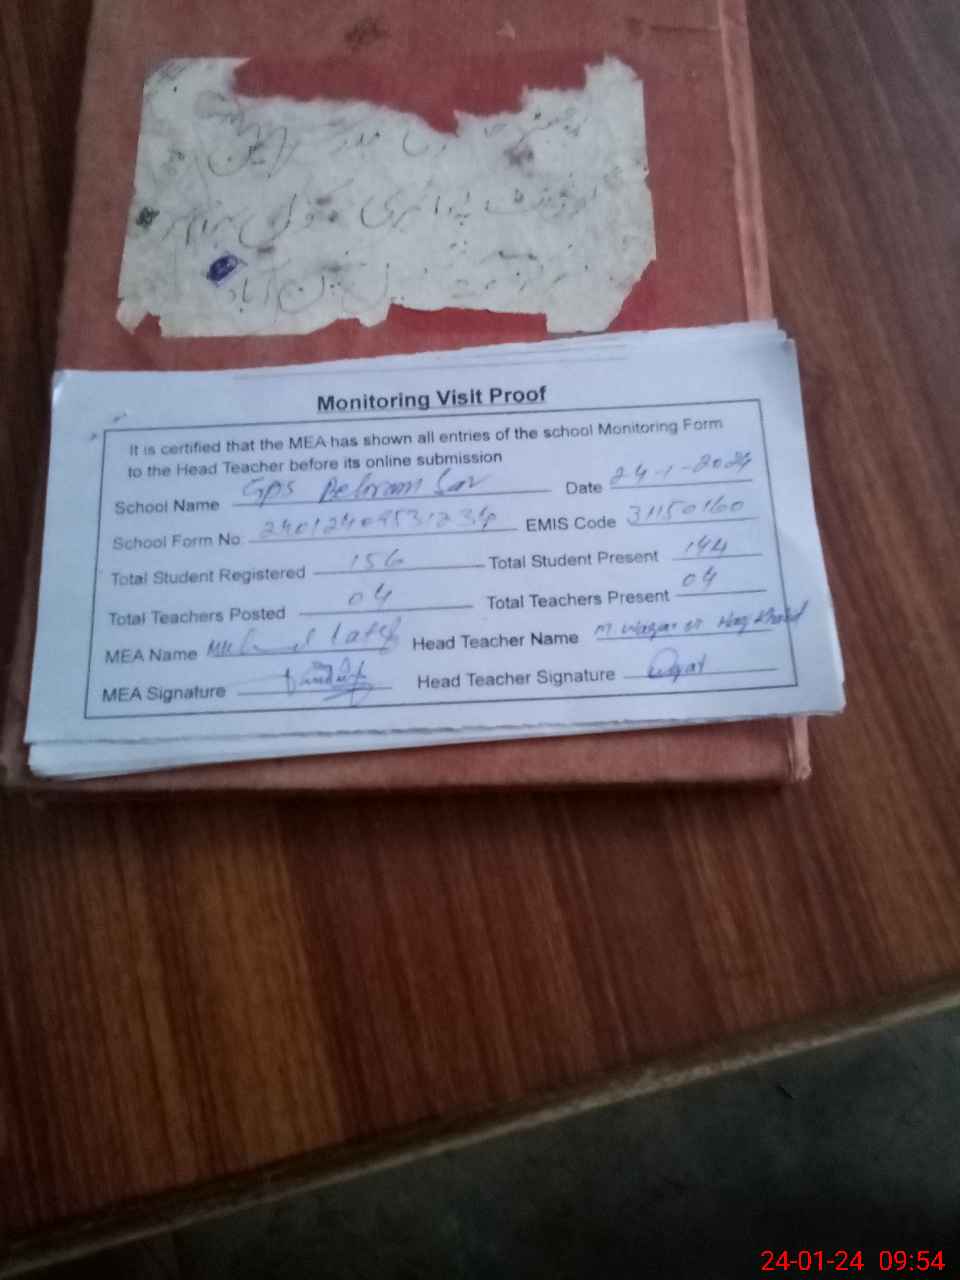 گورنمنٹ پرائمری سکول بہرام سر
Monitoring Visit Proof
It is certified that the MEA has shown all entries of the school Monitoring Form
to the Head Teacher before its online submission
School Name GPS Behram Sar Date 24-1-2024
School Form No. EMIS Code 31150160
Total Student Registered 156 Total Student Present 144
Total Teachers Posted 04 Total Teachers Present 04
MEA Name Latif Head Teacher Name M. Waqar ul Haq Khalid
MEA Signature Head Teacher Signature
24-01-24 09:54